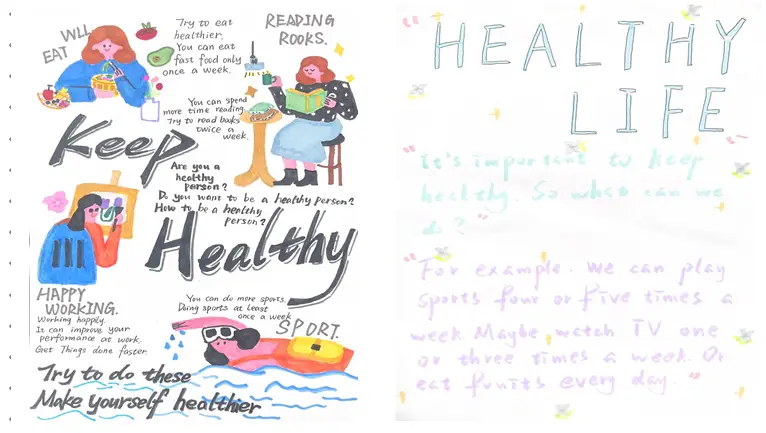 EAT WLL
Try to eat
healthier.
You can eat
fast food only
once a week.
READING
ROOKS.
You can spend
more time reading.
Try to read books
twice a
week.
Keep
Are you a
healthy
person?
Do you want to be a healthy person?
How to be a healthy
person?
Healthy
HAPPY
WORKING.
Working happily.
It can improve your
performance at work.
Get Things done faster.
You can do more sports.
Doing sports at least
once a week
SPORT.
Try to do these
Make yourself healthier
"HEALTHY
LIFE"
"It's important to keep
healthy. So what can we
do?"
"For example. We can play
sports four or five times a
week. Maybe watch TV one
or three times a week. Or
eat fruits every day."